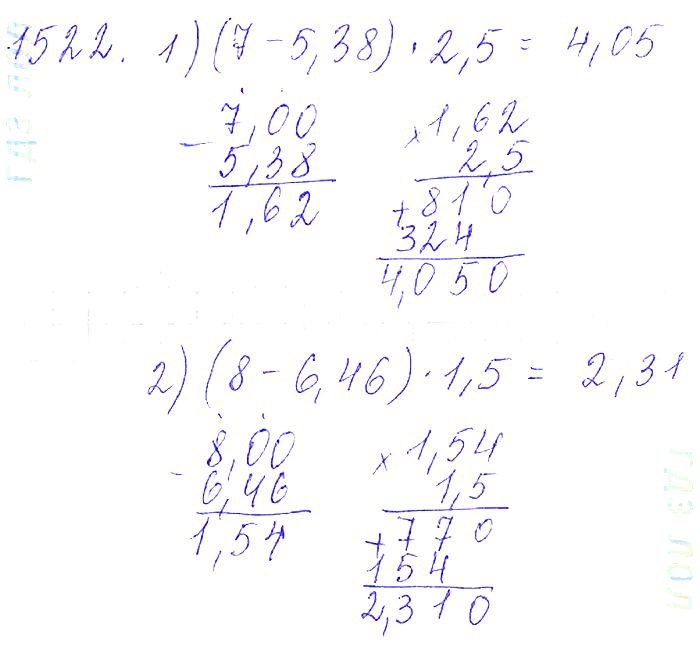 1522. 1) (7 - 5,38) · 2,5 = 4,05
7,00
- 5,38
1,62
× 1,62
2,5
+ 810
324
4,050
2) (8 - 6,46) · 1,5 = 2,31
8,00
- 6,46
1,54
× 1,54
1,5
+ 770
154
2,310
гдз лол
гдз лол